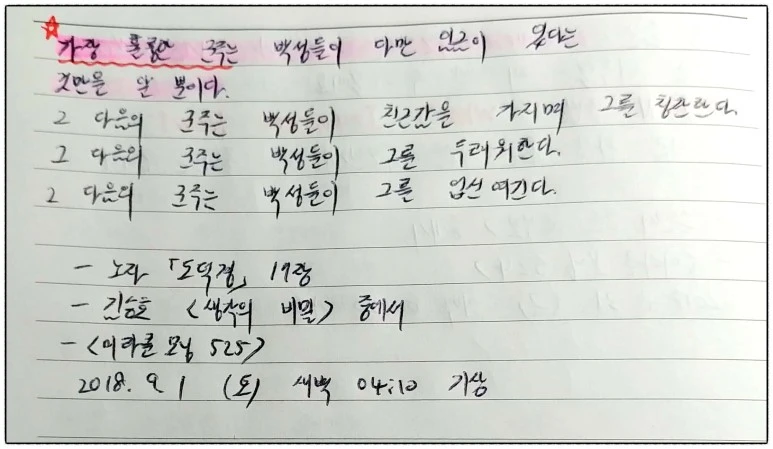 가장 훌륭한 군주는 백성들이 다만 임금이 있다는
것만을 알 뿐이다.
그 다음의 군주는 백성들이 친근감을 가지며 그를 칭찬한다.
그 다음의 군주는 백성들이 그를 두려워한다.
그 다음의 군주는 백성들이 그를 업신여긴다.
- 노자 「도덕경」 17장
- 김승호 <생각의 비밀> 중에서
- <미라클 모닝 525>
2018. 9. 1 (토) 새벽 04:10 기상